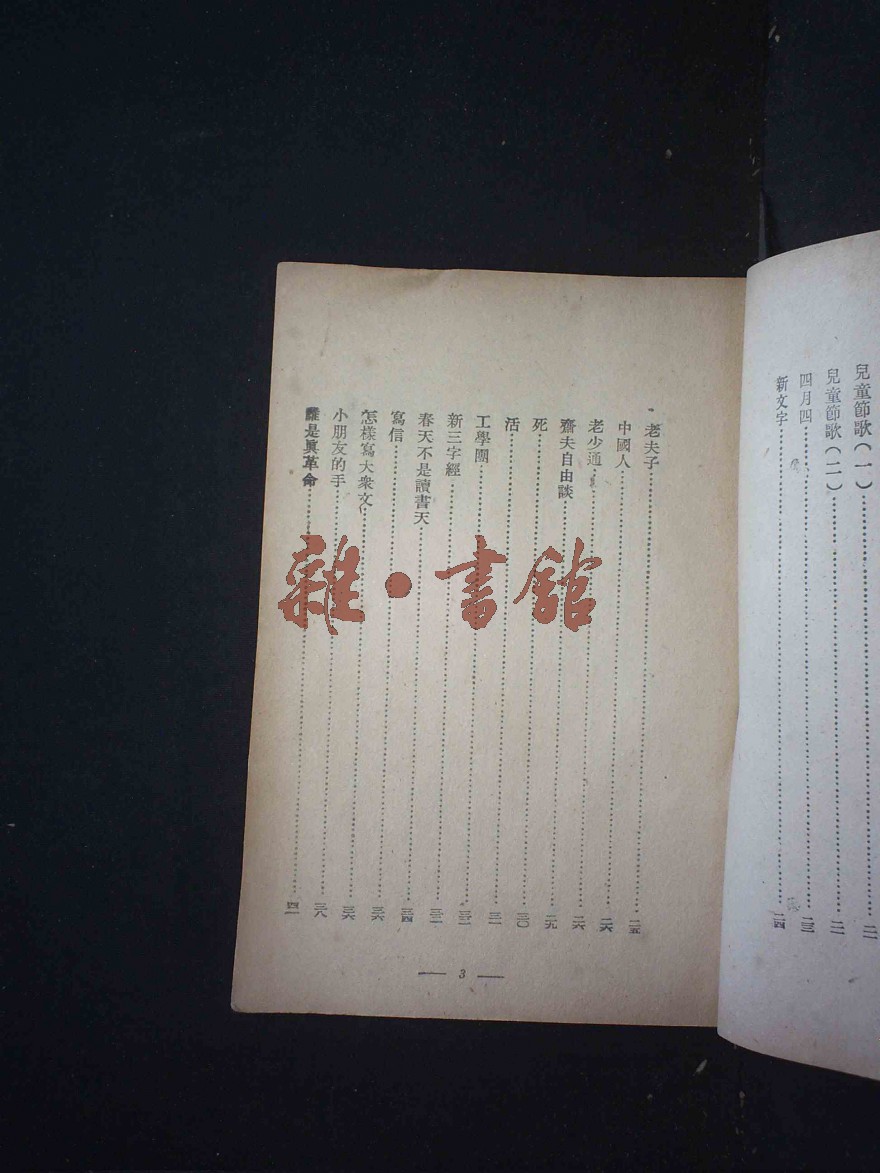 兒童節歌(一)……二一
兒童節歌(二)……二二
四月四……二三
新文字……二四
老夫子……二五
中國人……二六
老少通……二六
齋夫自由談……二九
死……三〇
活……三一
工學團……三二
新三字經……三二
春天不是讀書天……三三
寫信……三四
怎樣寫大衆文……三六
小朋友的手……三八
誰是眞革命……四一
— 3 —
雜·書館